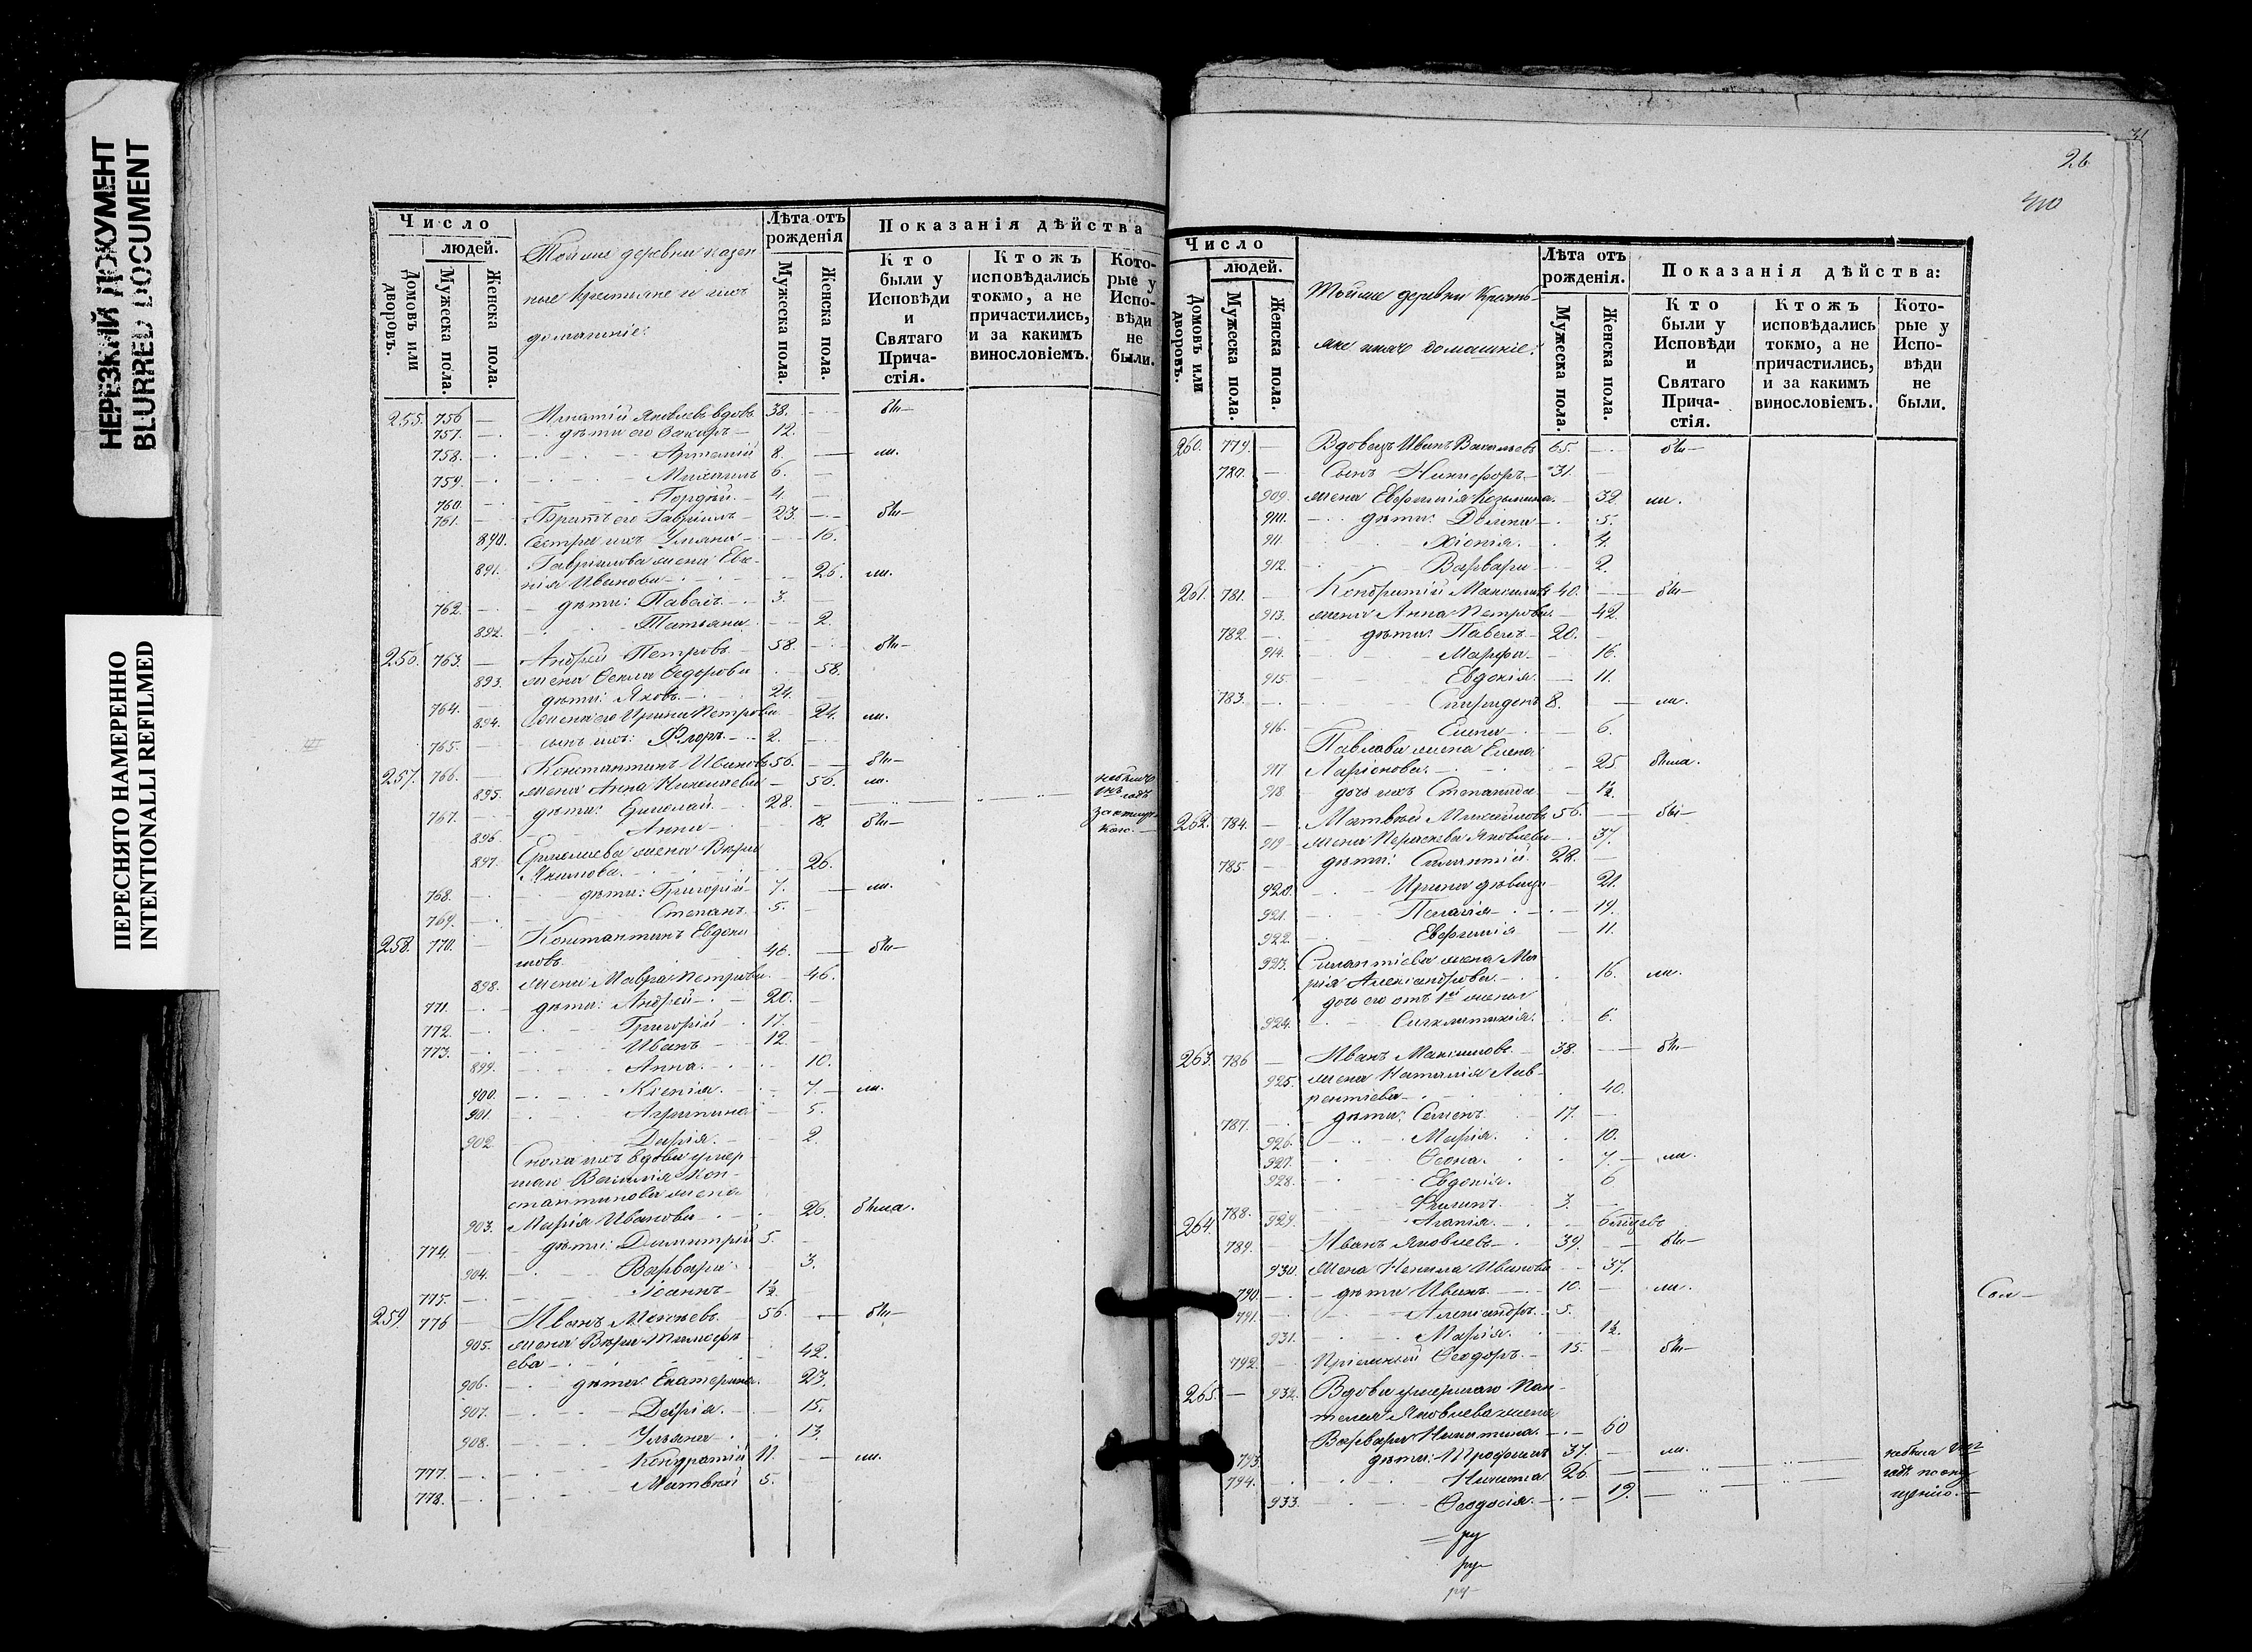 НЕРЕЗКИЙ ДОКУМЕНТ
BLURRED DOCUMENT
ПЕРЕСНЯТО НАМЕРЕННО
INTENTIONALLI REFILMED
Число
людей.
Домовъ или дворовъ.
Мужеска пола.
Женска пола.
Той же деревни казен
ные крестьяне и ихъ
домашніе:
Лѣта отъ рожденія
Мужеска пола.
Женска пола.
Показанія дѣйства
Кто были у Исповѣди и Святаго Причастія.
Ктожъ исповѣдались токмо, а не причастились, и за какимъ винословіемъ.
Которые у Исповѣди не были.
255. 756 Яковлевъ вдовъ 38. бы—
757. дѣти его Захаръ 12.
758. Артемій 8. — мл.
759. Михаилъ 6.
760. Гордѣй. 4.
761. Братъ его Гавріилъ 23. бы—
890. Сестра ихъ Ульяна 16.
891. Гаврилова жена Ев
нія Иванова 26. мл.
762. дѣти: Павелъ 3.
892. Татьяна 2.
256. 763. Андрей Петровъ 58. бы—
893. жена Ѳекла Ѳедорова 58.
764. дѣти: Яковъ 24.
894. жена его Ирина Петрова 24. мл.
765. сынъ ихъ: Флоръ 2.
257. 766. Константинъ Ивановъ 56. бы—
895. жена Анна Николаева 56. мл.
767. дѣти: Ермолай 28.
896. Анна 18. бы—
897. Ермолаева жена Вѣра
Якимова. 26.
768. дѣти: Григорій 7. — мл.
769. Степанъ 5.
258. 770. Константинъ Евдоки
мовъ 46. бы—
898. жена Мавра Петрова 46.
771. дѣти: Андрей 20.
772. Григорій 17.
773. Иванъ 12.
899. Анна. 10.
900. Ксенія. 7. мл.
901. Агрипина 5.
902. Дарія. 2.
Сноха ихъ вдова умер
шаго Василія Кон-
стантинова жена
903. Марія Иванова 26. была.
774. дѣти: Димитрій 5.
904. Варвара 3.
775. Іоаннъ 1½
259. 776 Иванъ Мокѣевъ 56. бы—
905. жена Вѣра Тимофѣ
ева 42.
906. дѣти: Екатерина. 23.
907. Дарія. 15.
908. Ульяна 13.
777. Кондратій 11. мл.
778. Матвѣй 5.
31
26
Число
людей.
Домовъ или дворовъ.
Мужеска пола.
Женска пола.
Той же деревни Кресть-
яне и ихъ домашніе:
Лѣта отъ рожденія.
Мужеска пола.
Женска пола.
Показанія дѣйства:
Кто были у Исповѣди и Святаго Причастія.
Ктожъ исповѣдались токмо, а не причастились, и за какимъ винословіемъ.
Которые у Исповѣди не были.
260. 779. Вдовецъ Иванъ Васильевъ 65. бы—
780. Сынъ Никифоръ 31.
909. жена Евфимія Козьмина 32 мл.
910. дѣти: Домна 5.
911. Хіонія. 4.
912. Варвара 2.
261. 781. Кондратій Максимовъ 40. бы—
913. жена Анна Петрова 42.
782. дѣти: Павелъ 20.
914. Марфа 16.
915. Евдокія. 11.
783. Спиридонъ 8. — мл.
916. Елена 6.
Павлова жена Елена
917 Ларіонова. 25 была.
918. дочь ихъ Степанида 1½
262. 784. Матвѣй Михайловъ 56. бы—
919 жена Параскева Яковлева 37.
785. дѣти: Силантій 28.
920. Ирина дѣвица 21.
921. Пелагія 19.
922. Евфимія 11.
923. Силантіева жена Ма
рія Александрова. 16. мл.
дочь его отъ 1й жены
924. Синклитикія. 6.
263. 786 Иванъ Максимовъ 38. бы—
925. жена Наталія Лав-
рентіева 40.
787. дѣти: Семенъ 17.
926. Марія. 10.
927. Ѳеона. 7. мл.
928. Евдокія. 6
788. Филипъ 3.
929. Агапія.
264. 789. Иванъ Яковлевъ 39. бы—
930. жена Ненила Иванова 37.
790. дѣти Иванъ 10. мл.
791. Александръ 5.
931. Марія. 1½
792. Пріемный Ѳеодоръ 15. бы—
265. 932. Вдова умершаго Пан-
телея Яковлева жена
Варвара Никитина 60
793. дѣти: Трофимъ 37. мл.
794. Никита 26
933. Ѳеодосія 19.